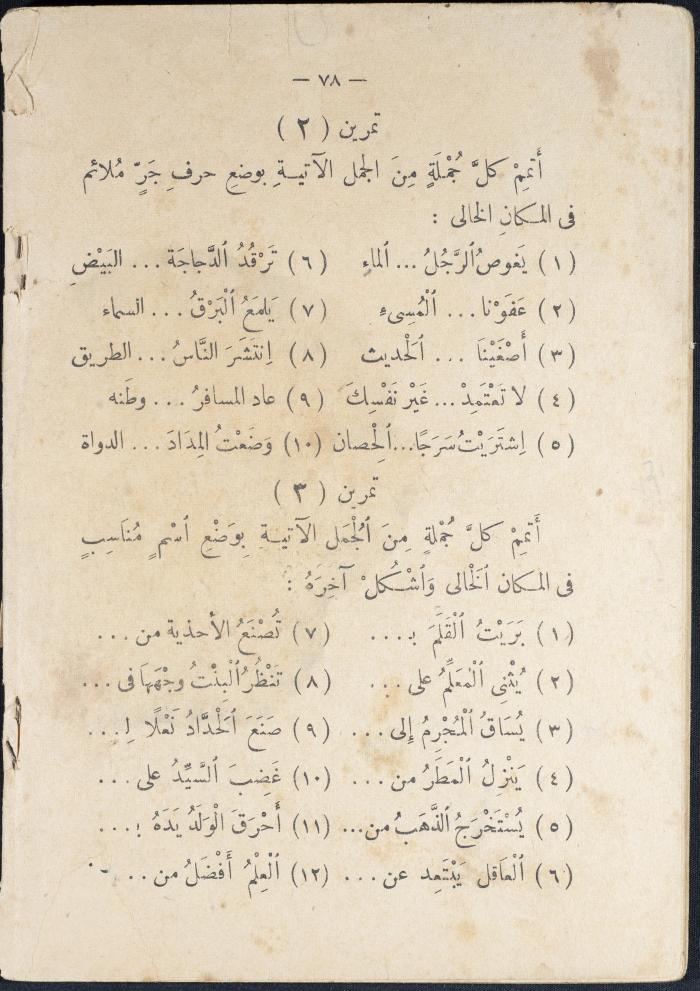 — ٧٨ —
تمرين ( ٢ )
أَتمِمْ كلَّ جُمْلَةٍ مِنَ الجمل الآتيـةِ بوضعِ حرفِ جَرٍّ مُلائم
فى المكانِ الخالى :
(١) يَغوصُ ٱلرَّجُلُ ... ٱلماءِ (٦) تَرْقُدُ ٱلدَّجاجَة ... البَيْضِ
(٢) عَفَوْنا ... ٱلْمُسِىءِ (٧) يَلمَعُ ٱلْبَرْقُ ... السماء
(٣) أَصْغَيْنَا ... ٱلْحديث (٨) اِنتَشَرَ النَّاسُ ... الطريق
(٤) لا تَعْتَمِدْ ... غَيْر نَفْسِكَ (٩) عاد المسافرُ ... وطَنه
(٥) اِشتَرَيْتُ سَرَجًا ... ٱلْحِصان (١٠) وَضَعْتُ المِدَادَ ... الدواة
تمرين ( ٣ )
أَتمِمْ كلَّ جُمْلةٍ مِنَ ٱلْجُمَل الآتيـةِ بِوَضْعِ ٱسْمٍ مُنَاسِبٍ
فى المكان ٱلْخالى وَٱشْكُلْ آخِرَهُ :
(١) بَرَيْتُ ٱلْقَلَمَ بـ ... (٧) تُصْنَعُ الأحذية من ...
(٢) يُثْنِى ٱلْمُعَلِّمُ على ... (٨) تَنْظُرُ ٱلْبِنْتُ وجْهَهَا فى ...
(٣) يُسَاقُ ٱلْمُجْرِمُ إلى ... (٩) صَنَعَ ٱلْحَدَّادُ نَعْلًا لِـ ...
(٤) يَنْزِلُ ٱلْمَطَرُ من ... (١٠) غَضِبَ ٱلسَّيِّدُ على ...
(٥) يُسْتَخْرَجُ ٱلذَّهَبُ من ... (١١) أَحْرَقَ ٱلْوَلَدُ يَدَهُ بـ ...
(٦) ٱلْعاقل يَبْتَعِد عن ... (١٢) ٱلْعِلْمُ أَفْضَلُ من ...